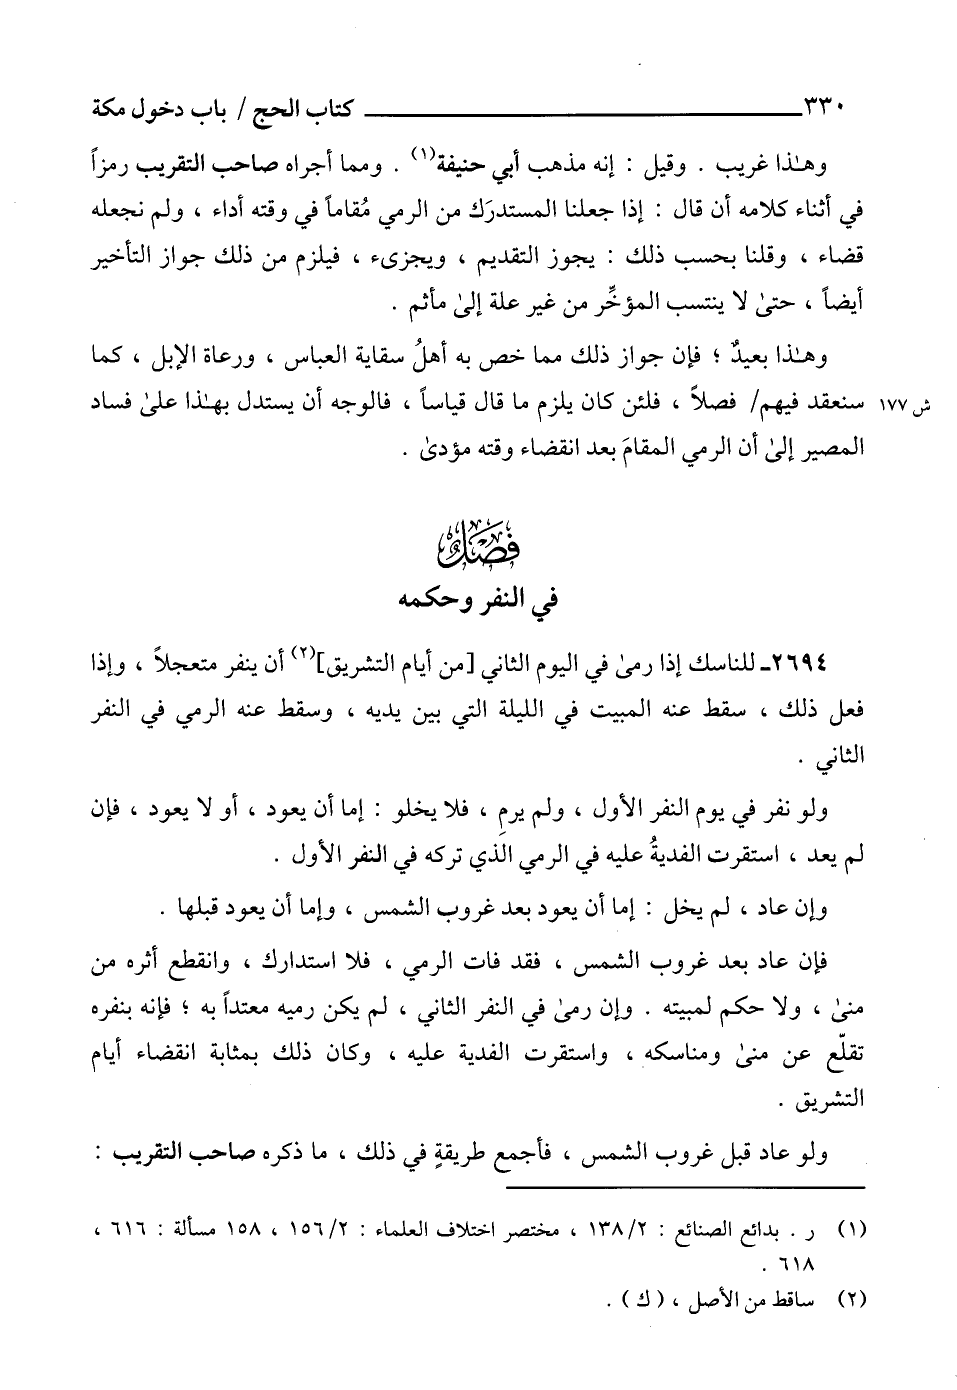 ٣٣٠ كتاب الحج / باب دخول مكة
وهـٰذا غريب . وقيل : إنه مذهب أبي حنيفة(١) . ومما أجراه صاحب التقريب رمزاً
في أثناء كلامه أن قال : إذا جعلنا المستدرَك من الرمي مُقاماً في وقته أداء ، ولم نجعله
قضاء ، وقلنا بحسب ذلك : يجوز التقديم ، ويجزىء ، فيلزم من ذلك جواز التأخير
أيضاً ، حتىٰ لا ينتسب المؤخِّر من غير علة إلىٰ مأثم .
وهـٰذا بعيدٌ ؛ فإن جواز ذلك مما خص به أهلُ سقاية العباس ، ورعاة الإبل ، كما
ش ١٧٧ سنعقد فيهم/ فصلاً ، فلئن كان يلزم ما قال قياساً ، فالوجه أن يستدل بهـٰذا علىٰ فساد
المصير إلىٰ أن الرمي المقامَ بعد انقضاء وقته مؤدىٰ .
فَصْلٌ
في النفر وحكمه
٢٦٩٤ـ للناسك إذا رمىٰ في اليوم الثاني [من أيام التشريق](٢) أن ينفر متعجلاً ، وإذا
فعل ذلك ، سقط عنه المبيت في الليلة التي بين يديه ، وسقط عنه الرمي في النفر
الثاني .
ولو نفر في يوم النفر الأول ، ولم يرمِ ، فلا يخلو : إما أن يعود ، أو لا يعود ، فإن
لم يعد ، استقرت الفديةُ عليه في الرمي الذي تركه في النفر الأول .
وإن عاد ، لم يخل : إما أن يعود بعد غروب الشمس ، وإما أن يعود قبلها .
فإن عاد بعد غروب الشمس ، فقد فات الرمي ، فلا استدارك ، وانقطع أثره من
منىٰ ، ولا حكم لمبيته . وإن رمىٰ في النفر الثاني ، لم يكن رميه معتداً به ؛ فإنه بنفره
تقلّع عن منىٰ ومناسكه ، واستقرت الفدية عليه ، وكان ذلك بمثابة انقضاء أيام
التشريق .
ولو عاد قبل غروب الشمس ، فأجمع طريقةٍ في ذلك ، ما ذكره صاحب التقريب :
(١) ر . بدائع الصنائع : ١٣٨/٢ ، مختصر اختلاف العلماء : ١٥٦/٢ ، ١٥٨ مسألة : ٦١٦ ،
٦١٨ .
(٢) ساقط من الأصل ، ( ك ) .